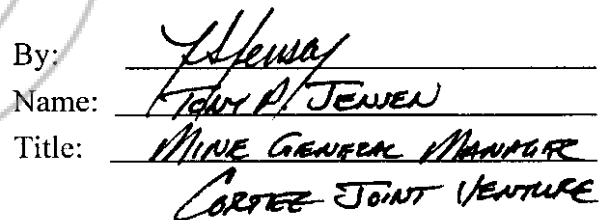 By:
Name: Tony P. Jensen
Title: Mine General Manager
Cortez Joint Venture